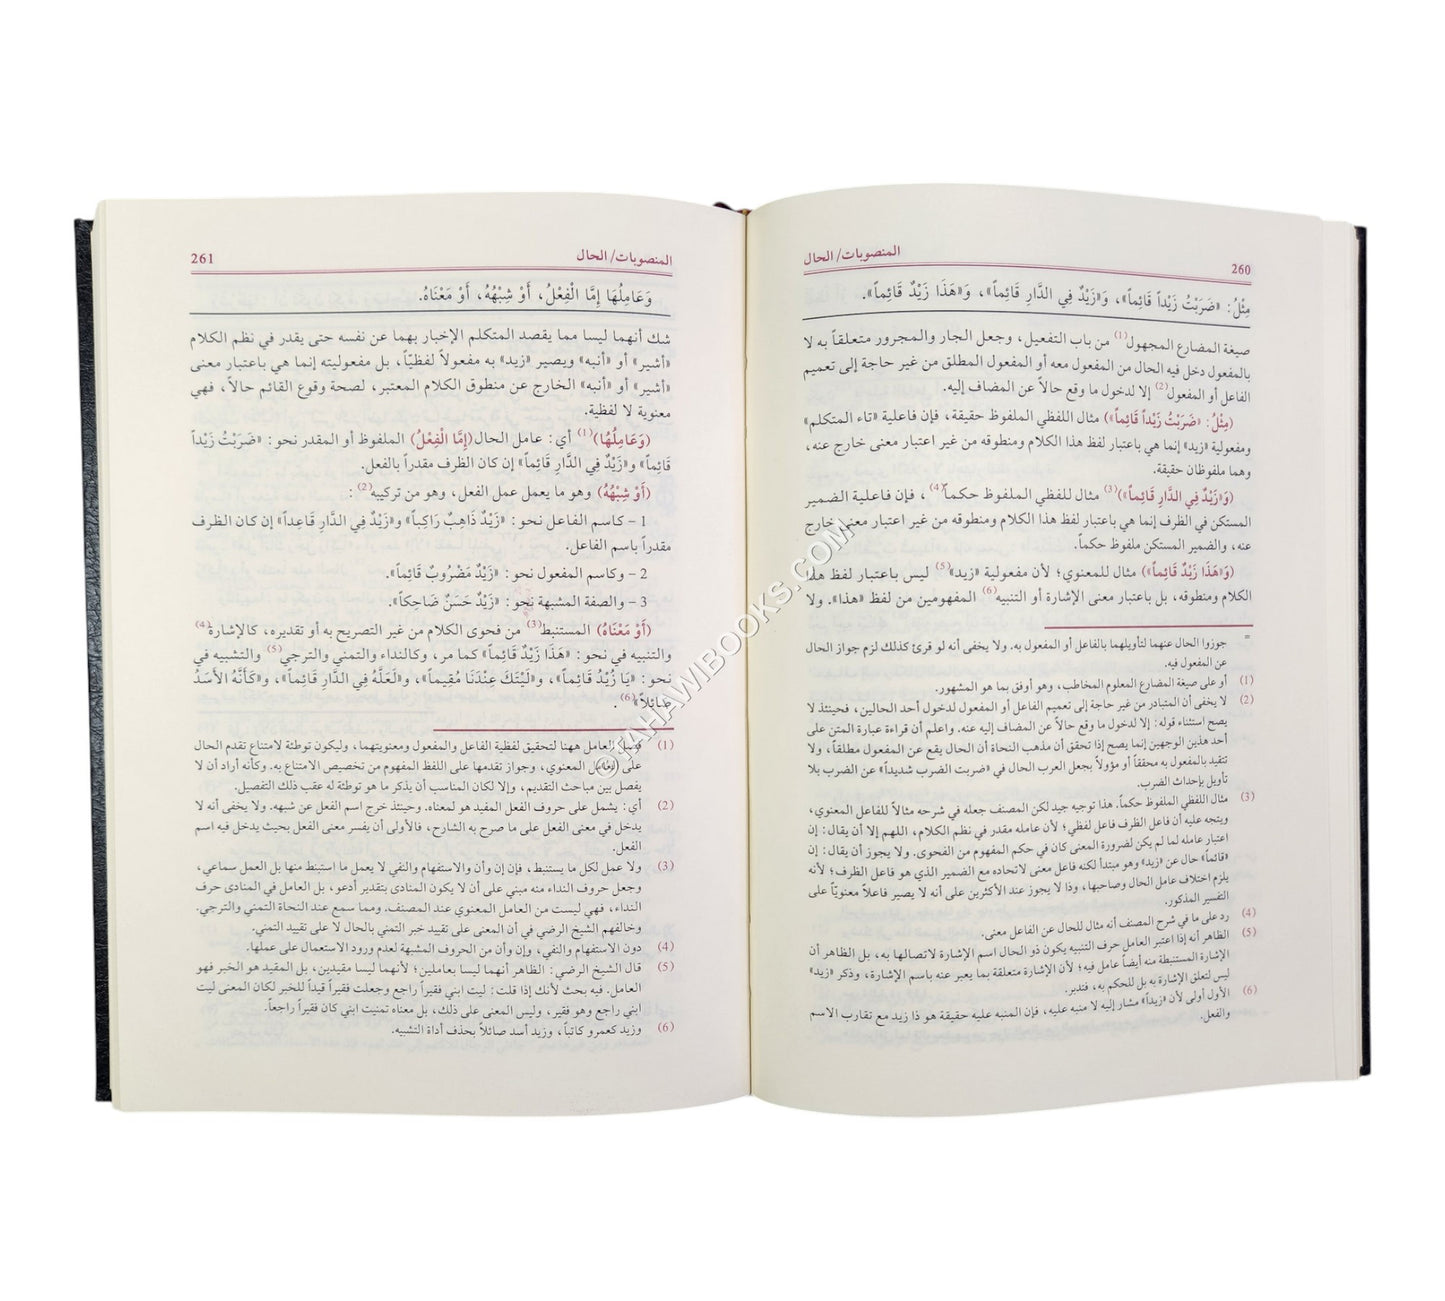 260
المنصوبات/الحال
مِثْلُ: «ضَرَبْتُ زَيْداً قَائِماً»، وَ«زَيْدٌ فِي الدَّارِ قَائِماً»، وَ«هَذَا زَيْدٌ قَائِماً».
صيغة المضارع المجهول(1) من باب التفعيل، وجعل الجار والمجرور متعلقاً به لا
بالمفعول دخل فيه الحال من المفعول معه أو المفعول المطلق من غير حاجة إلى تعميم
الفاعل أو المفعول(2) إلا لدخول ما وقع حالاً عن المضاف إليه.
(مِثْلُ: «ضَرَبْتُ زَيْداً قَائِماً») مثال اللفظي الملفوظ حقيقة، فإن فاعلية «تاء المتكلم»
ومفعولية «زيد» إنما هي باعتبار لفظ هذا الكلام ومنطوقه من غير اعتبار معنى خارج عنه،
وهما ملفوظان حقيقة.
(وَ«زَيْدٌ فِي الدَّارِ قَائِماً»)(3) مثال للفظي الملفوظ حكماً(4)، فإن فاعلية الضمير
المستكن في الظرف إنما هي باعتبار لفظ هذا الكلام ومنطوقه من غير اعتبار معنى خارج
عنه، والضمير المستكن ملفوظ حكماً.
(وَ«هَذَا زَيْدٌ قَائِماً») مثال للمعنوي؛ لأن مفعولية «زيد»(5) ليس باعتبار لفظ هذا
الكلام ومنطوقه، بل باعتبار معنى الإشارة أو التنبيه(6) المفهومين من لفظ «هذا». ولا
= جوزوا الحال عنهما لتأويلهما بالفاعل أو المفعول به. ولا يخفى أنه لو قرئ كذلك لزم جواز الحال
عن المفعول فيه.
(1) أو على صيغة المضارع المعلوم المخاطب، وهو أوفق بما هو المشهور.
(2) لا يخفى أن المتبادر من غير حاجة إلى تعميم الفاعل أو المفعول لدخول أحد الحالين، فحينئذ لا
يصح استثناء قوله: إلا لدخول ما وقع حالاً عن المضاف إليه عنه. واعلم أن قراءة عبارة المتن على
أحد هذين الوجهين إنما يصح إذا تحقق أن مذهب النحاة أن الحال يقع عن المفعول مطلقاً، ولا
تتقيد بالمفعول به محققاً أو مؤولاً بجعل العرب الحال في «ضربت الضرب شديداً» عن الضرب بلا
تأويل بإحداث الضرب.
(3) مثال اللفظي الملفوظ حكماً. هذا توجيه جيد لكن المصنف جعله في شرحه مثالاً للفاعل المعنوي،
ويتجه عليه أن فاعل الظرف فاعل لفظي؛ لأن عامله مقدر في نظم الكلام، اللهم إلا أن يقال: إن
اعتبار عامله لما لم يكن لضرورة المعنى كان في حكم المفهوم من الفحوى. ولا يجوز أن يقال: إن
«قائماً» حال عن «زيد» وهو مبتدأ لكنه فاعل معنى لاتحاده مع الضمير الذي هو فاعل الظرف؛ لأنه
يلزم اختلاف عامل الحال وصاحبها، وذا لا يجوز عند الأكثرين على أنه لا يصير فاعلاً معنويّاً على
التفسير المذكور.
(4) رد على ما في شرح المصنف أنه مثال للحال عن الفاعل معنى.
(5) الظاهر أنه إذا اعتبر العامل حرف التنبيه يكون ذو الحال اسم الإشارة لاتصالها به، بل الظاهر أن
الإشارة المستنبطة منه أيضاً عامل فيه؛ لأن الإشارة متعلقة بما يعبر عنه باسم الإشارة، وذكر «زيد»
ليس لتعلق الإشارة به بل للحكم به، فتدبر.
(6) الأول أولى لأن «زيداً» مشار إليه لا منبه عليه، فإن المنبه عليه حقيقة هو ذا زيد مع تقارب الاسم
والفعل.
المنصوبات/الحال
261
وَعَامِلُهَا إِمَّا الْفِعْلُ، أَوْ شِبْهُهُ، أَوْ مَعْنَاهُ.
شك أنهما ليسا مما يقصد المتكلم الإخبار بهما عن نفسه حتى يقدر في نظم الكلام
«أشير» أو «أنبه» ويصير «زيد» به مفعولاً لفظيّاً، بل مفعوليته إنما هي باعتبار معنى
«أشير» أو «أنبه» الخارج عن منطوق الكلام المعتبر، لصحة وقوع القائم حالاً، فهي
معنوية لا لفظية.
(وَعَامِلُهَا)(1) أي: عامل الحال (إِمَّا الْفِعْلُ) الملفوظ أو المقدر نحو: «ضَرَبْتُ زَيْداً
قَائِماً» و«زَيْدٌ فِي الدَّارِ قَائِماً» إن كان الظرف مقدراً بالفعل.
(أَوْ شِبْهُهُ) وهو ما يعمل عمل الفعل، وهو من تركيبه(2):
1 – كاسم الفاعل نحو: «زَيْدٌ ذَاهِبٌ رَاكِباً» و«زَيْدٌ فِي الدَّارِ قَاعِداً» إن كان الظرف
مقدراً باسم الفاعل.
2 – وكاسم المفعول نحو: «زَيْدٌ مَضْرُوبٌ قَائِماً».
3 – والصفة المشبهة نحو: «زَيْدٌ حَسَنٌ ضَاحِكاً».
(أَوْ مَعْنَاهُ) المستنبط(3) من فحوى الكلام من غير التصريح به أو تقديره، كالإشارة(4)
والتنبيه في نحو: «هَذَا زَيْدٌ قَائِماً» كما مر، وكالنداء والتمني والترجي(5) والتشبيه في
نحو: «يَا زُيْدُ قَائِماً»، و«لَيْتَكَ عِنْدَنَا مُقِيماً»، و«لَعَلَّهُ فِي الدَّارِ قَائِماً»، و«كَأَنَّهُ الأَسَدُ
صَائِلاً»(6).
(1) قسم العامل ههنا لتحقيق لفظية الفاعل والمفعول ومعنويتهما، وليكون توطئة لامتناع تقدم الحال
على العامل المعنوي، وجواز تقدمها على اللفظ المفهوم من تخصيص الامتناع به. وكأنه أراد أن لا
يفصل بين مباحث التقديم، وإلا لكان المناسب أن يذكر ما هو توطئة له عقب ذلك التفصيل.
(2) أي: يشمل على حروف الفعل المفيد هو لمعناه. وحينئذ خرج اسم الفعل عن شبهه. ولا يخفى أنه لا
يدخل في معنى الفعل على ما صرح به الشارح، فالأولى أن يفسر معنى الفعل بحيث يدخل فيه اسم
الفعل.
(3) ولا عمل لكل ما يستنبط، فإن إن وأن والاستفهام والنفي لا يعمل ما استنبط منها بل العمل سماعي،
وجعل حروف النداء منه مبني على أن لا يكون المنادى بتقدير أدعو، بل العامل في المنادى حرف
النداء، فهي ليست من العامل المعنوي عند المصنف. ومما سمع عند النحاة التمني والترجي.
وخالفهم الشيخ الرضي في أن المعنى على تقييد خبر التمني بالحال لا على تقييد التمني.
(4) دون الاستفهام والنفي، وإن وأن من الحروف المشبهة لعدم ورود الاستعمال على عملها.
(5) قال الشيخ الرضي: الظاهر أنهما ليسا بعاملين؛ لأنهما ليسا مقيدين، بل المقيد هو الخبر فهو
العامل. فيه بحث لأنك إذا قلت: ليت ابني فقيراً راجع وجعلت فقيراً قيداً للخبر لكان المعنى ليت
ابني راجع وهو فقير، وليس المعنى على ذلك، بل معناه تمنيت ابني كان فقيراً راجعاً.
(6) وزيد كعمرو كاتباً، وزيد أسد صائلاً بحذف أداة التشبيه.
© JAHAWIBOOKS.COM